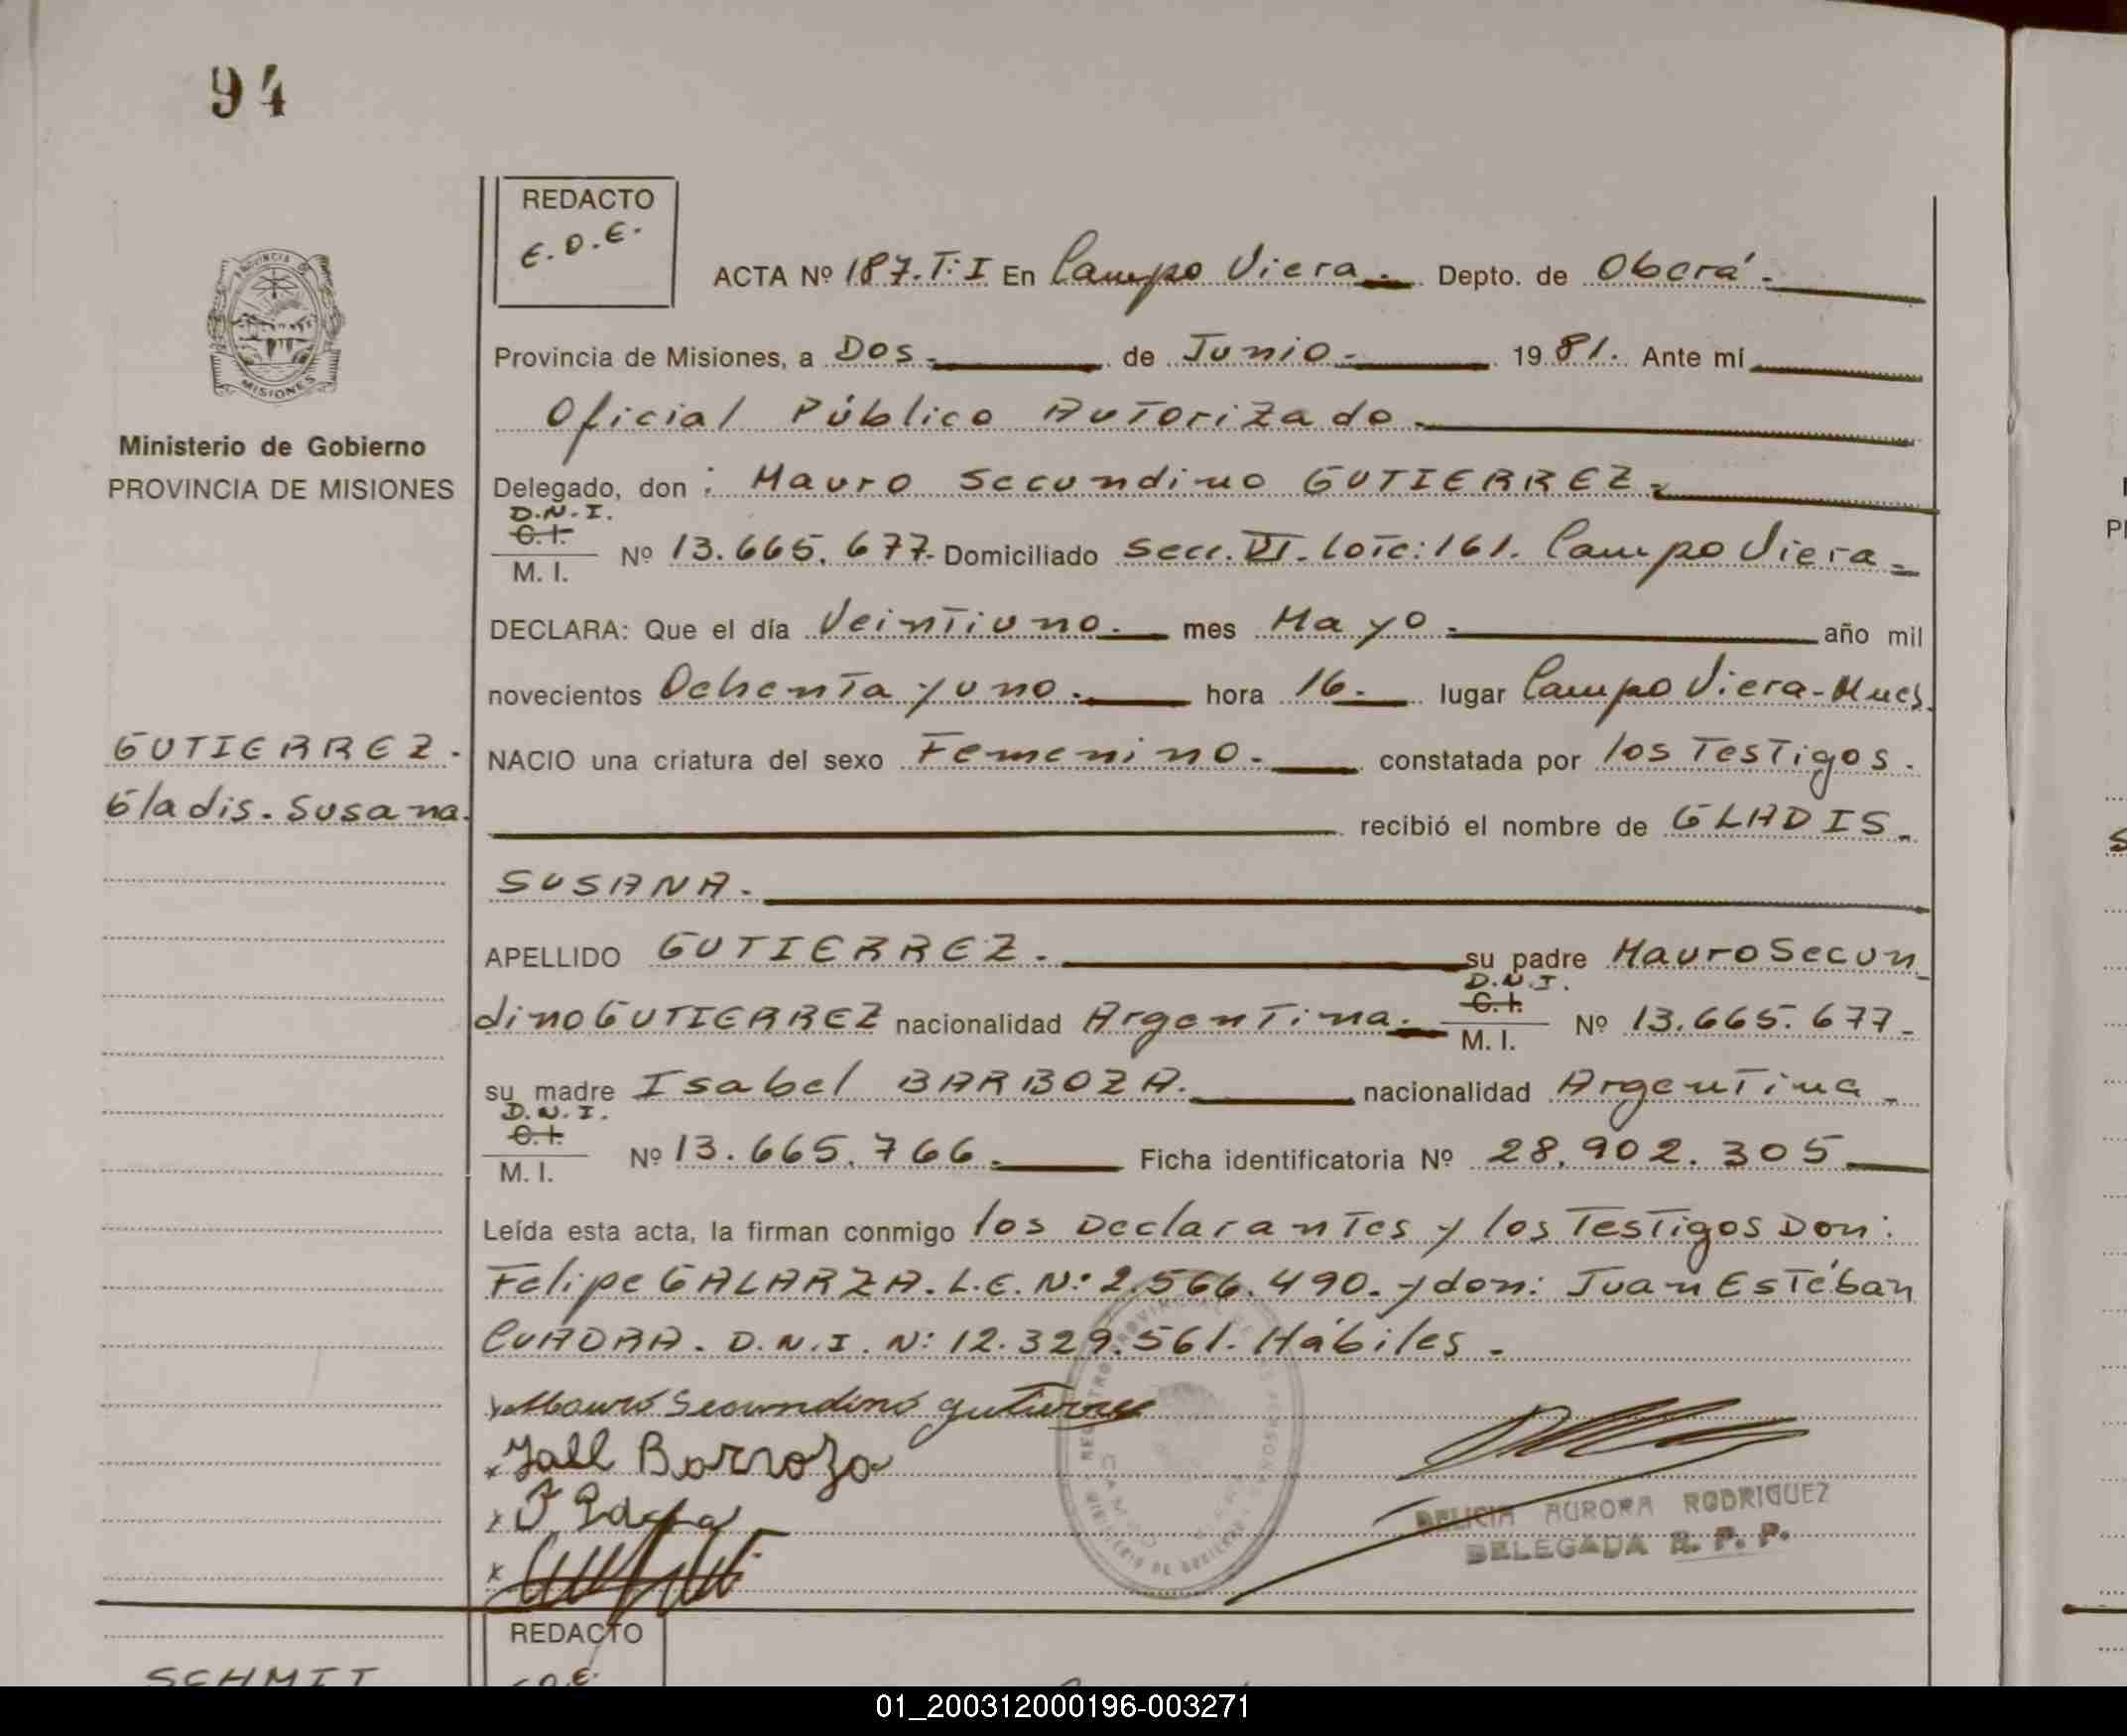 94
REDACTO
E.O.E.
ACTA Nº 187.T:I En Campo Viera.- Depto. de Oberá.-
Provincia de Misiones, a Dos.- de Junio.- 1981. Ante mí
Oficial Público Autorizado.-
Ministerio de Gobierno
PROVINCIA DE MISIONES
Delegado, don : Mauro Secundino GUTIERREZ.-
D.N.I.
C.I.
M. I. Nº 13.665.677.- Domiciliado Secc. VI. Lote: 161. Campo Viera.-
DECLARA: Que el día Veintiuno.- mes Mayo.- año mil
novecientos Ochenta y uno.- hora 16.- lugar Campo Viera-Mnes.
GUTIERREZ.
Gladis. Susana.
NACIO una criatura del sexo Femenino.- constatada por los Testigos.
recibió el nombre de GLADIS.
SUSANA.
APELLIDO GUTIERREZ.- su padre Mauro Secun
D.N.I.
dino GUTIERREZ nacionalidad Argentina.- C.I. M. I. Nº 13.665.677.-
su madre Isabel BARBOZA.- nacionalidad Argentina.-
D.N.I.
C.I.
M. I. Nº 13.665.766.- Ficha identificatoria Nº 28.902.305
Leída esta acta, la firman conmigo los Declarantes y los Testigos Don:
Felipe GALARZA. L.E. N: 2.566.490. y don: Juan Estéban
CUADRA. D.N.I. N: 12.329.561. Hábiles.-
x Mauro Secundino gutierrez
DELICIA AURORA RODRIGUEZ
DELEGADA R. P. P.
REDACTO
SCHMIT
01_200312000196-003271